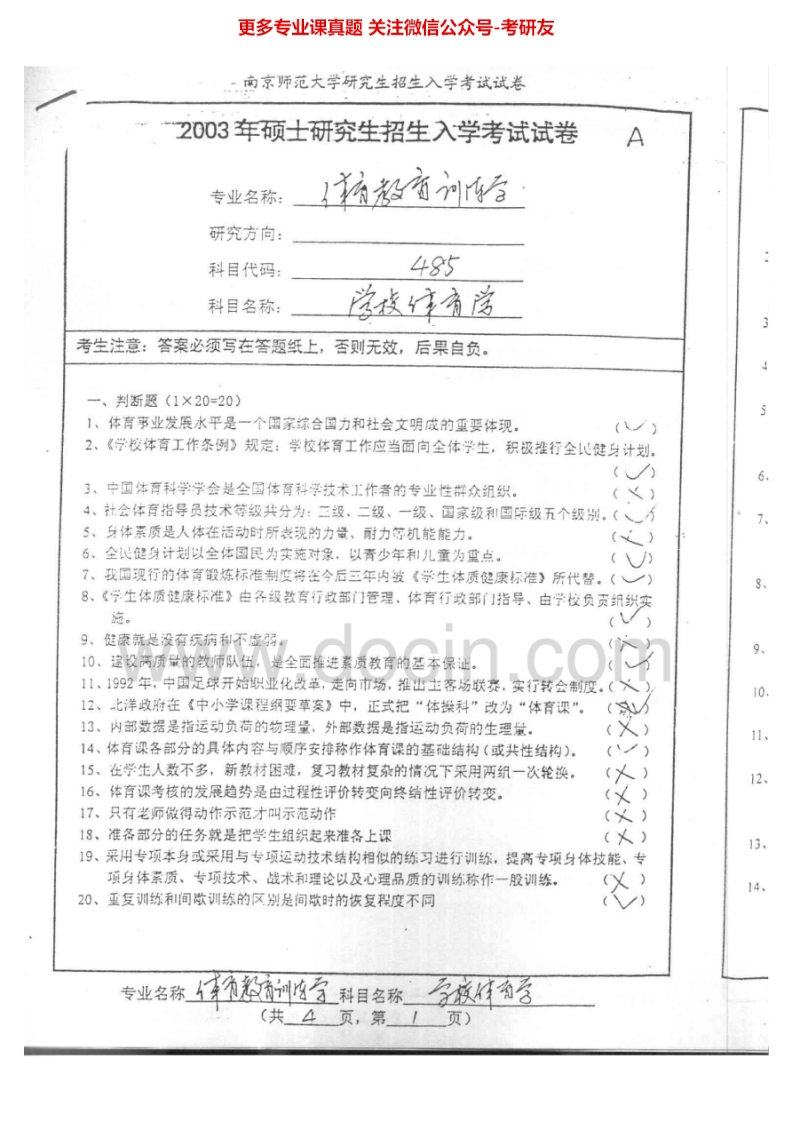 更多专业课真题 关注微信公众号-考研友
南京师范大学研究生招生入学考试试卷
2003年硕士研究生招生入学考试试卷 A
专业名称： 体育教育训练学
研究方向：
科目代码： 485
科目名称： 学校体育学
考生注意：答案必须写在答题纸上，否则无效，后果自负。
一、判断题（1×20=20）
1、体育事业发展水平是一个国家综合国力和社会文明成的重要体现。 (✓)
2、《学校体育工作条例》规定：学校体育工作应当面向全体学生，积极推行全民健身计划。
(✓)
3、中国体育科学学会是全国体育科学技术工作者的专业性群众组织。 (×)
4、社会体育指导员技术等级共分为：三级、二级、一级、国家级和国际级五个级别。(✓)
5、身体素质是人体在活动时所表现的力量、耐力等机能能力。 (×)
6、全民健身计划以全体国民为实施对象，以青少年和儿童为重点。 (✓)
7、我国现行的体育锻炼标准制度将在今后三年内被《学生体质健康标准》所代替。(✓)
8、《学生体质健康标准》由各级教育行政部门管理、体育行政部门指导、由学校负责组织实
施。 (✓)
9、健康就是没有疾病和不虚弱。 (×)
10、建设高质量的教师队伍，是全面推进素质教育的基本保证。 (✓)
11、1992年，中国足球开始职业化改革，走向市场，推出主客场联赛，实行转会制度。(×)
12、北洋政府在《中小学课程纲要草案》中，正式把“体操科”改为“体育课”。 (✓)
13、内部数据是指运动负荷的物理量，外部数据是指运动负荷的生理量。 (×)
14、体育课各部分的具体内容与顺序安排称作体育课的基础结构（或共性结构）。 (✓)
15、在学生人数不多，新教材困难，复习教材复杂的情况下采用两组一次轮换。 (×)
16、体育课考核的发展趋势是由过程性评价转变向终结性评价转变。 (×)
17、只有老师做得动作示范才叫示范动作 (×)
18、准备部分的任务就是把学生组织起来准备上课 (×)
19、采用专项本身或采用与专项运动技术结构相似的练习进行训练，提高专项身体技能、专
项身体素质、专项技术、战术和理论以及心理品质的训练称作一般训练。 (×)
20、重复训练和间歇训练的区别是间歇时的恢复程度不同 (✓)
www.docin.com
专业名称 体育教育训练学 科目名称 学校体育学
（共 4 页，第 1 页）
2
3
4
5
6.
7、
8、
9、
10、
11、
12、
13、
14、